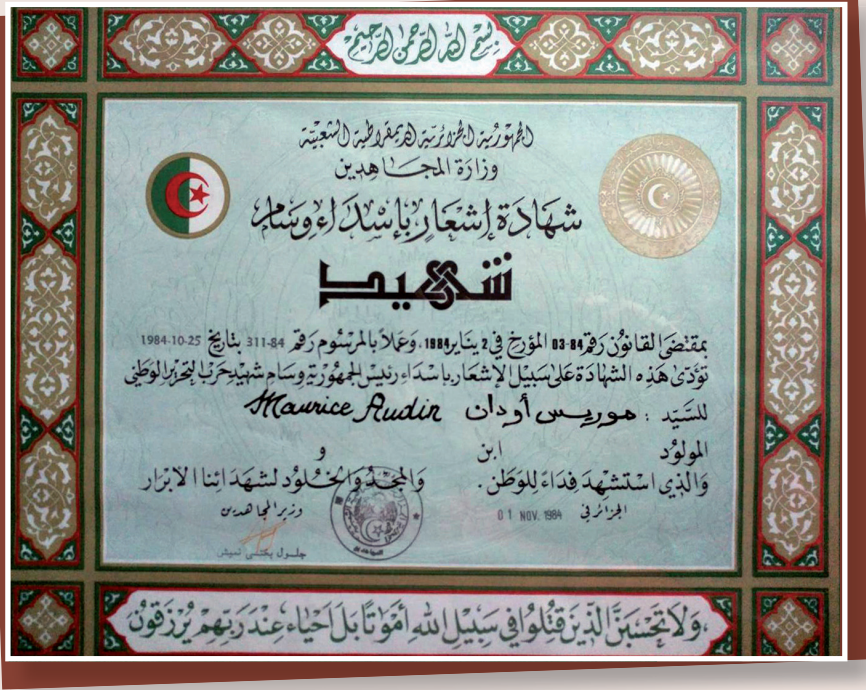 بسم الله الرحمن الرحيم
الجمهورية الجزائرية الديمقراطية الشعبية
وزارة المجاهدين
شهادة إشعار بإسداء وسام
شهيد
بمقتضى القانون رقم 84-03 المؤرخ في 2 يناير 1984، وعملا بالمرسوم رقم 84-311 بتاريخ 25-10-1984
تؤدى هذه الشهادة على سبيل الإشعار بإسداء رئيس الجمهورية وسام شهيد حرب التحرير الوطني
للسيد : موريس أودان Maurice Audin
المولود ابن و
والذي استشهد فداء للوطن . والمجد والخلود لشهدائنا الابرار
الجزائر في 01 NOV. 1984 وزير المجاهدين
جلول بختي نميش
ولا تحسبن الذين قتلوا في سبيل الله أمواتا بل احياء عند ربهم يرزقون